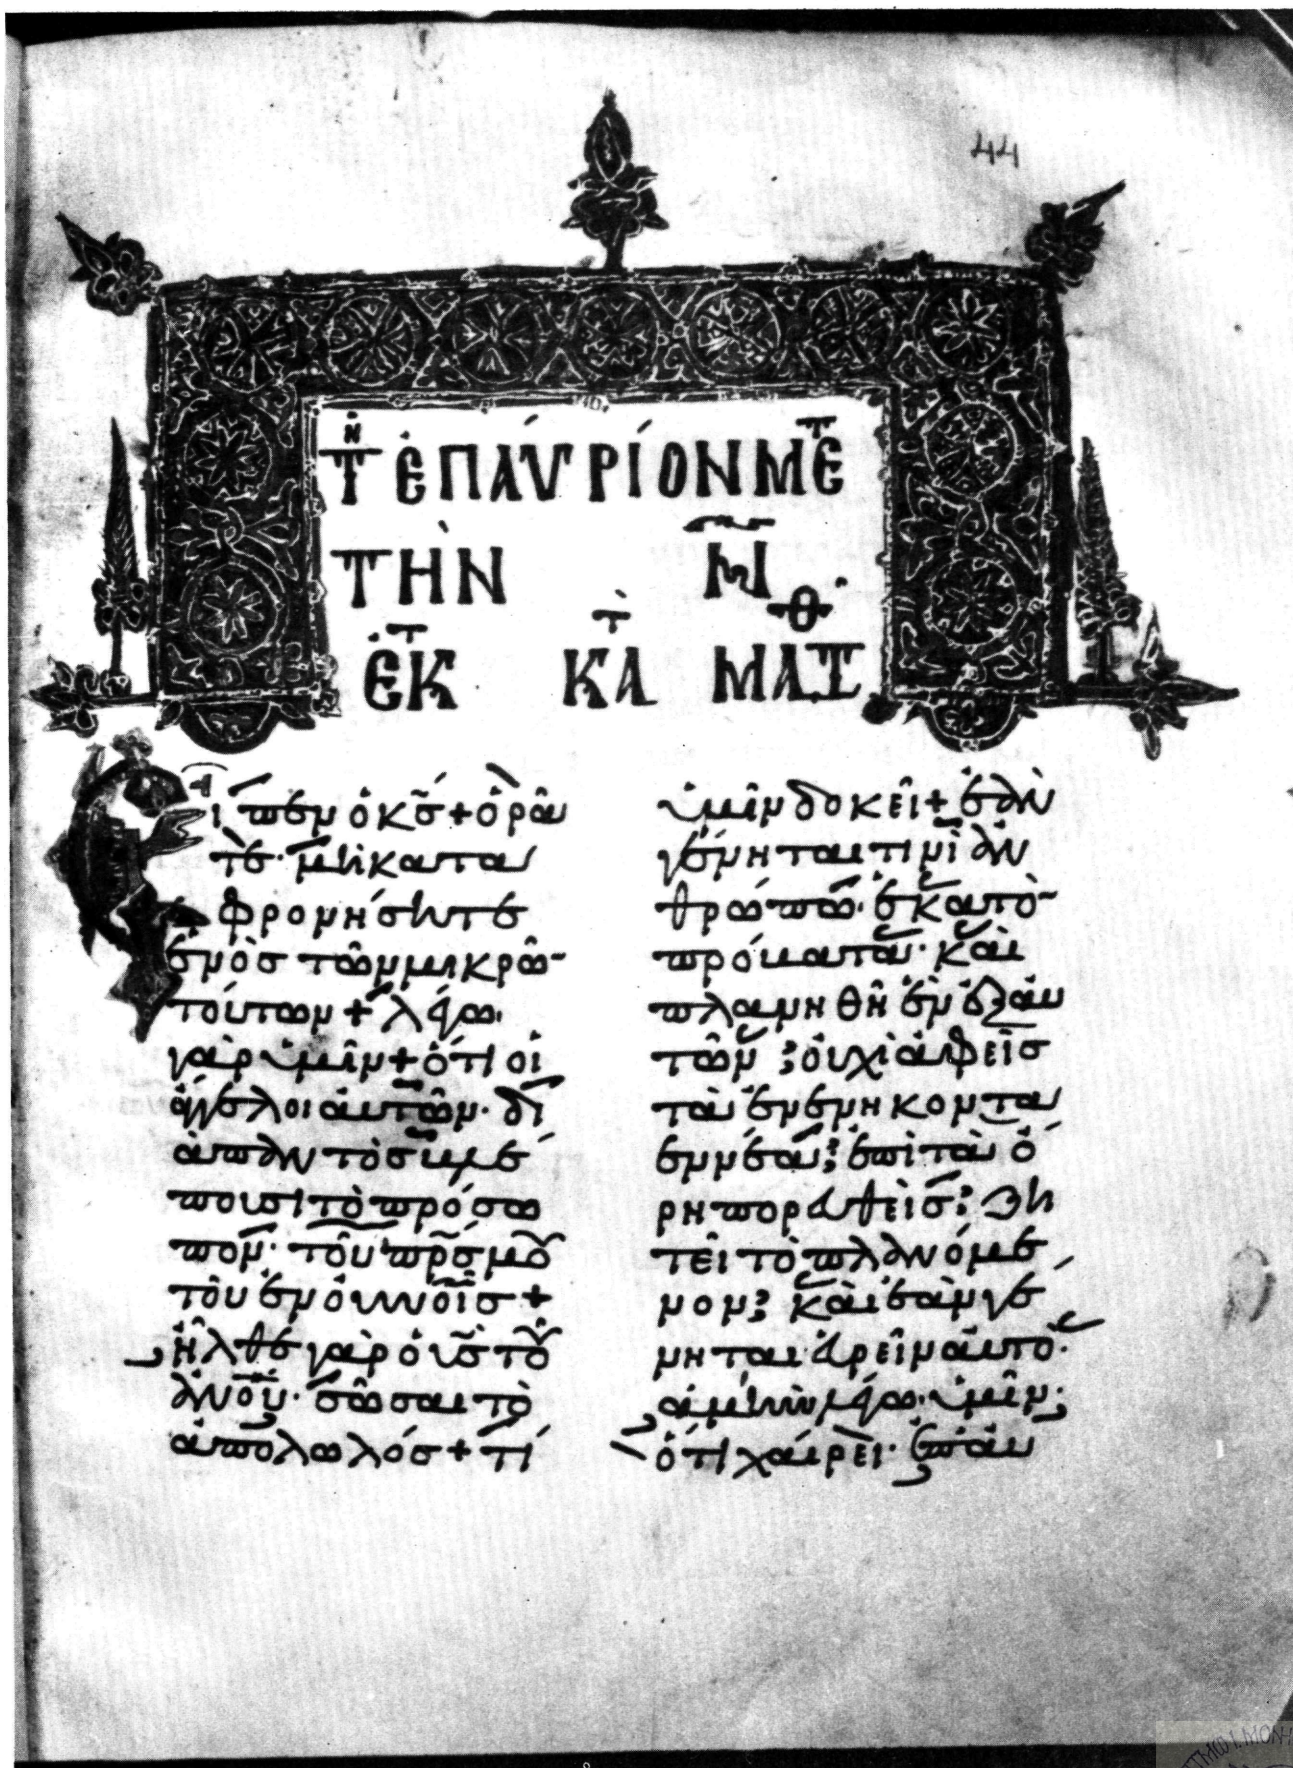 44
Τῌ ἐπαύριον μετ
τὴν Ν
ἐκ τ κατ Ματθ
Εἶπεν ὁ κς̄ + ὁρᾶ
τε· μὴ κατα
φρονήσητε
ἑνὸς τῶν μικρῶ-
τούτων + λέγω
γὰρ ὑμῖν + ὅτι οἱ
ἄγγελοι αὐτῶν· δϊ
ἁπαντὸς βλέ
πουσι τὸ πρόσω
πον· τοῦ πρ̅ς μου
τοῦ ἐν οὐνοῖς +
ἦλθε γὰρ ὁ υς̅ τοῦ
ἀνοῦ· σῶσαι τὸ
ἀπολωλός + τί
ὑμῖν δοκεῖ + ἐὰν
γένηται τινὶ ἀν
θρώπω· ἑκατὸ-
πρόβατα· καὶ
πλανηθῆ ἓν ἐξ αὐ
τῶν; οὐχὶ ἀφεὶς
τὰ ἐνενηκοντα
ἐννέα; ἐπὶ τὰ ὄ
ρη πορευθεὶς; ζη
τεῖ τὸ πλανόμε
νον; καὶ ἐὰν γέ
νηται εὑρεῖν αὐτό·
ἀμὴν λέγω ὑμῖν·
ὅτι χαίρει· ἐπ' αὐ